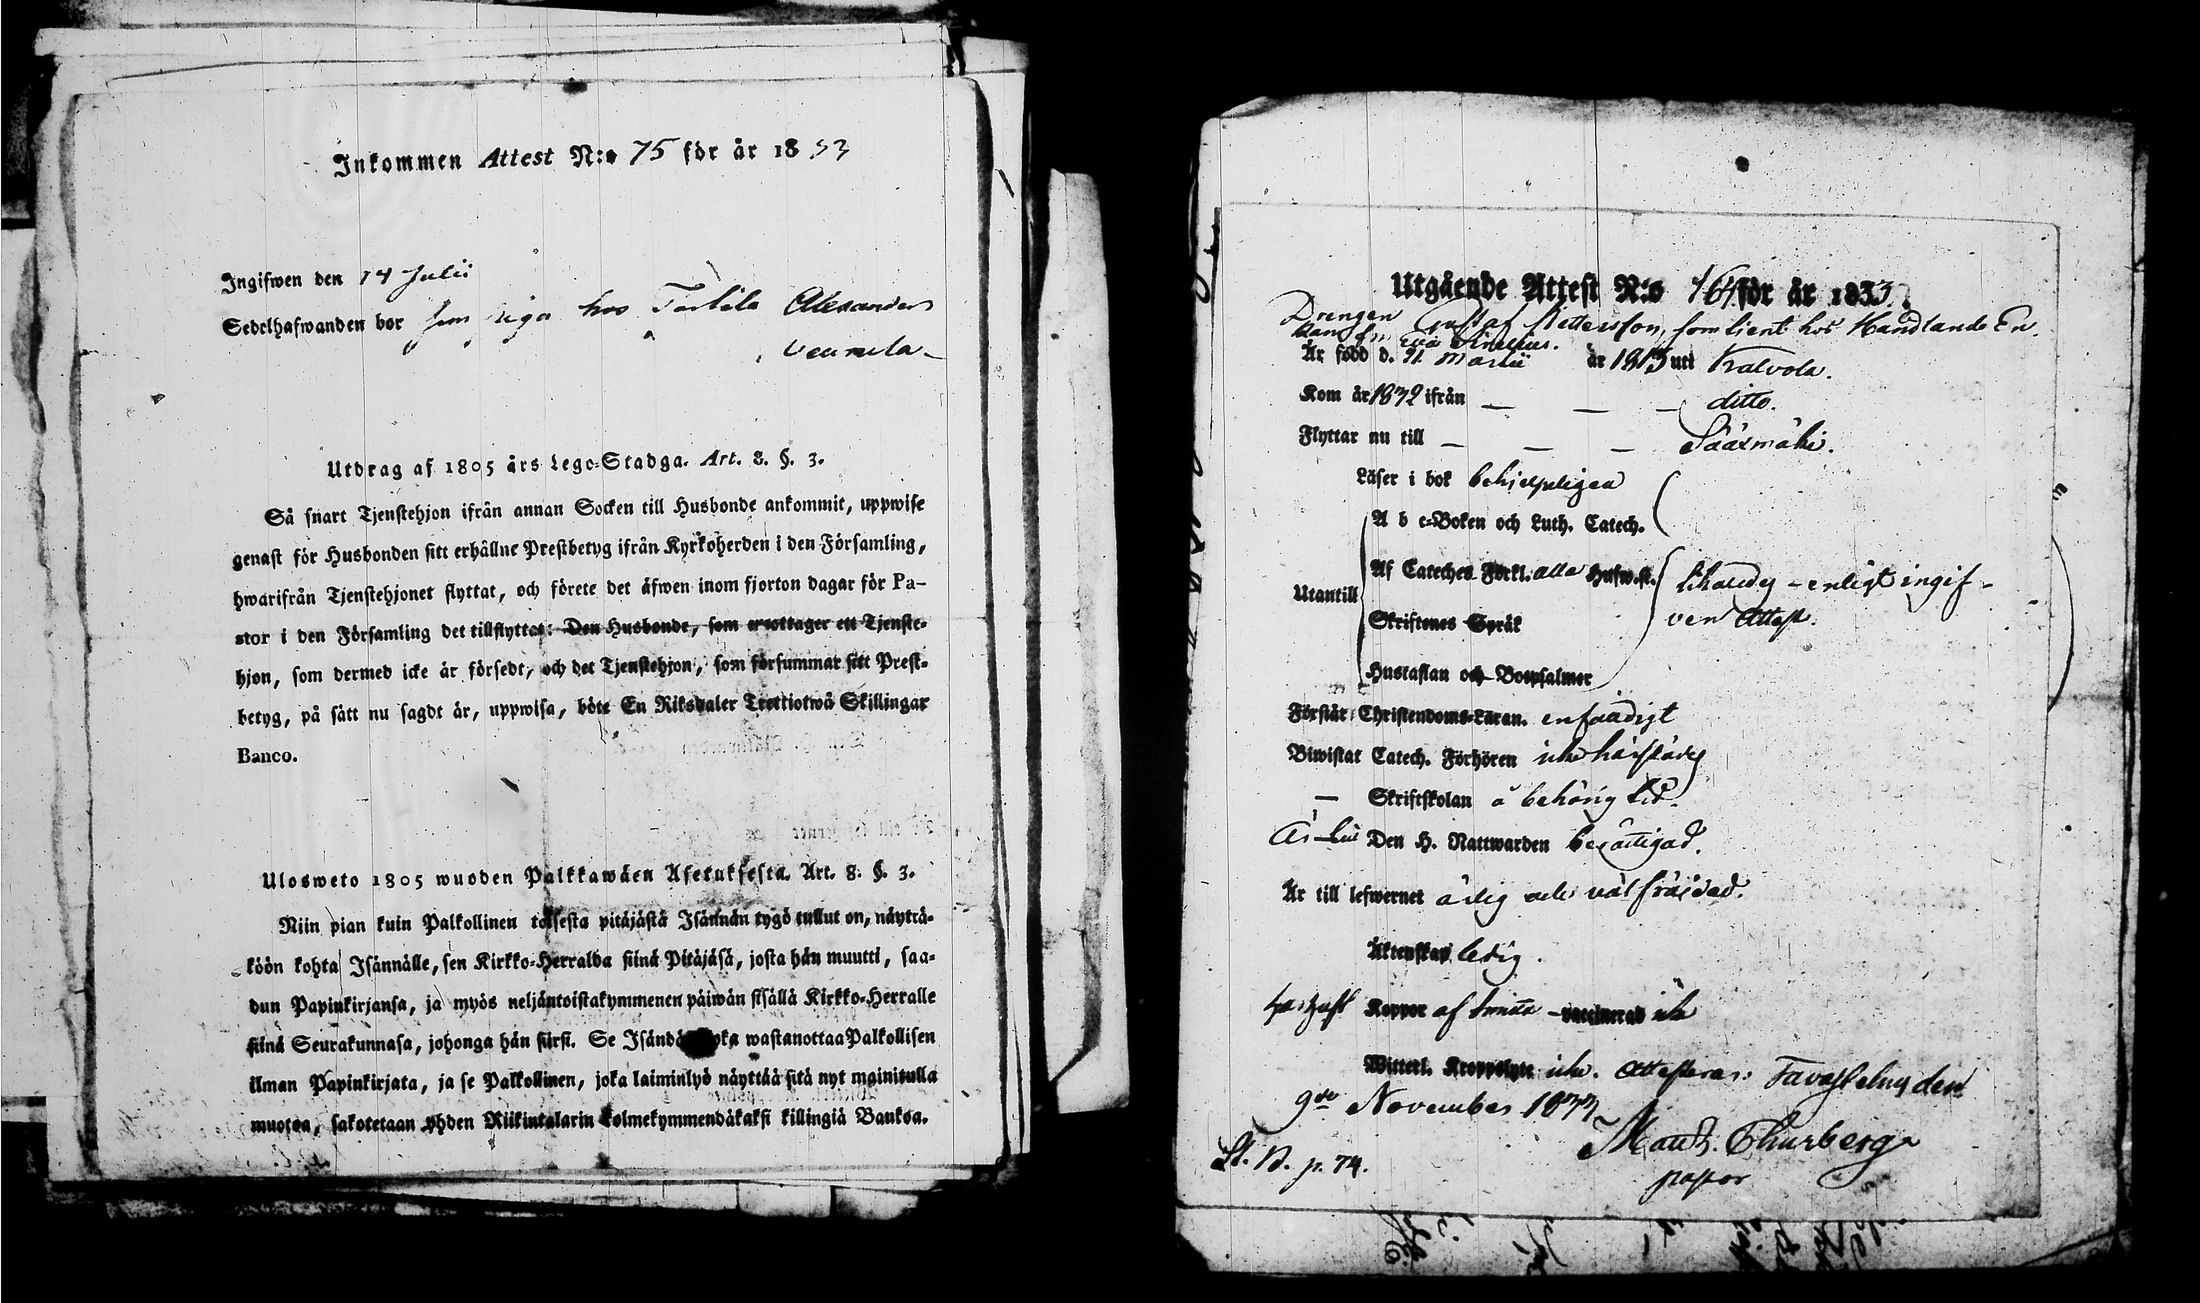 Inkommen Attest N:o 75 för år 1833
Ingifwen den 14 Julii
Sedelhafwanden bor hos Alexander
Utdrag af 1805 års Lego-Stadga. Art. 8. §. 3.
Så snart Tjenstehjon ifrån annan Socken till Husbonde ankommit, uppwise
genast för Husbonden sitt erhållne Prestbetyg ifrån Kyrkoherden i den Församling,
hwarifrån Tjenstehjonet flyttat, och förete det äfwen inom fjorton dagar för Pa-
stor i den Församling det tillflyttat: Den Husbonde, som emottager ett Tjenste-
hjon, som dermed icke är försedt, och det Tjenstehjon, som försummar sitt Prest-
betyg, på sätt nu sagdt är, uppwisa, böte En Riksdaler Trettiotwå Skillingar
Banco.
Ulosweto 1805 wuoden Palkkawäen Asetuksesta. Art. 8. §. 3.
Niin pian kuin Palkollinen toisesta pitäjästä Isännän tygö tullut on, näyttä-
köön kohta Isännälle, sen Kirkko-Herralda siinä Pitäjäsä, josta hän muutti, saa-
dun Papinkirjansa, ja myös neljäntoistakymmenen päiwän sisällä Kirkko-Herralle
siinä Seurakunnasa, johonga hän siirsi. Se Isändä joka wastanottaa Palkollisen
ilman Papinkirjata, ja se Palkollinen, joka laiminlyö näyttää sitä nyt mainitulla
muotoa, sakotetaan yhden Riikintalarin kolmekymmendäkaksi killingiä Bankoa.
Utgående Attest N:o 161 för år 1833.
Drengen Gustaf Pettersson, som tient hos Handlande En
kan Fru Eva
Är född d. 21 Martii år 1813 uti Kalvola.
Kom år 1832 ifrån — — — ditto.
Flyttar nu till — — — Sääxmäki.
Läser i bok behjelpligen
A b c-Boken och Luth. Catech.
Af Cateches Förkl. alla Hufw.st. likaledes enligt ingif-
Utantill
Skriftenes Språk ven Attest.
Hustaflan och Botpsalmer
Förstår Christendoms-Läran. enfaldigt
Biwistat Catech. Förhören icke härstädes
— Skriftskolan å behörig tid.
Är till Den H. Nattwarden berättigad.
Är till lefwernet ärlig och välfräjdad.
Äktenskap ledig.
haft Koppor af vaccinerad icke
Witterl. Kroppslyte icke. Attesteras: Tavastehus den
9de November 1833
Thurberg
pastor
p. 74.